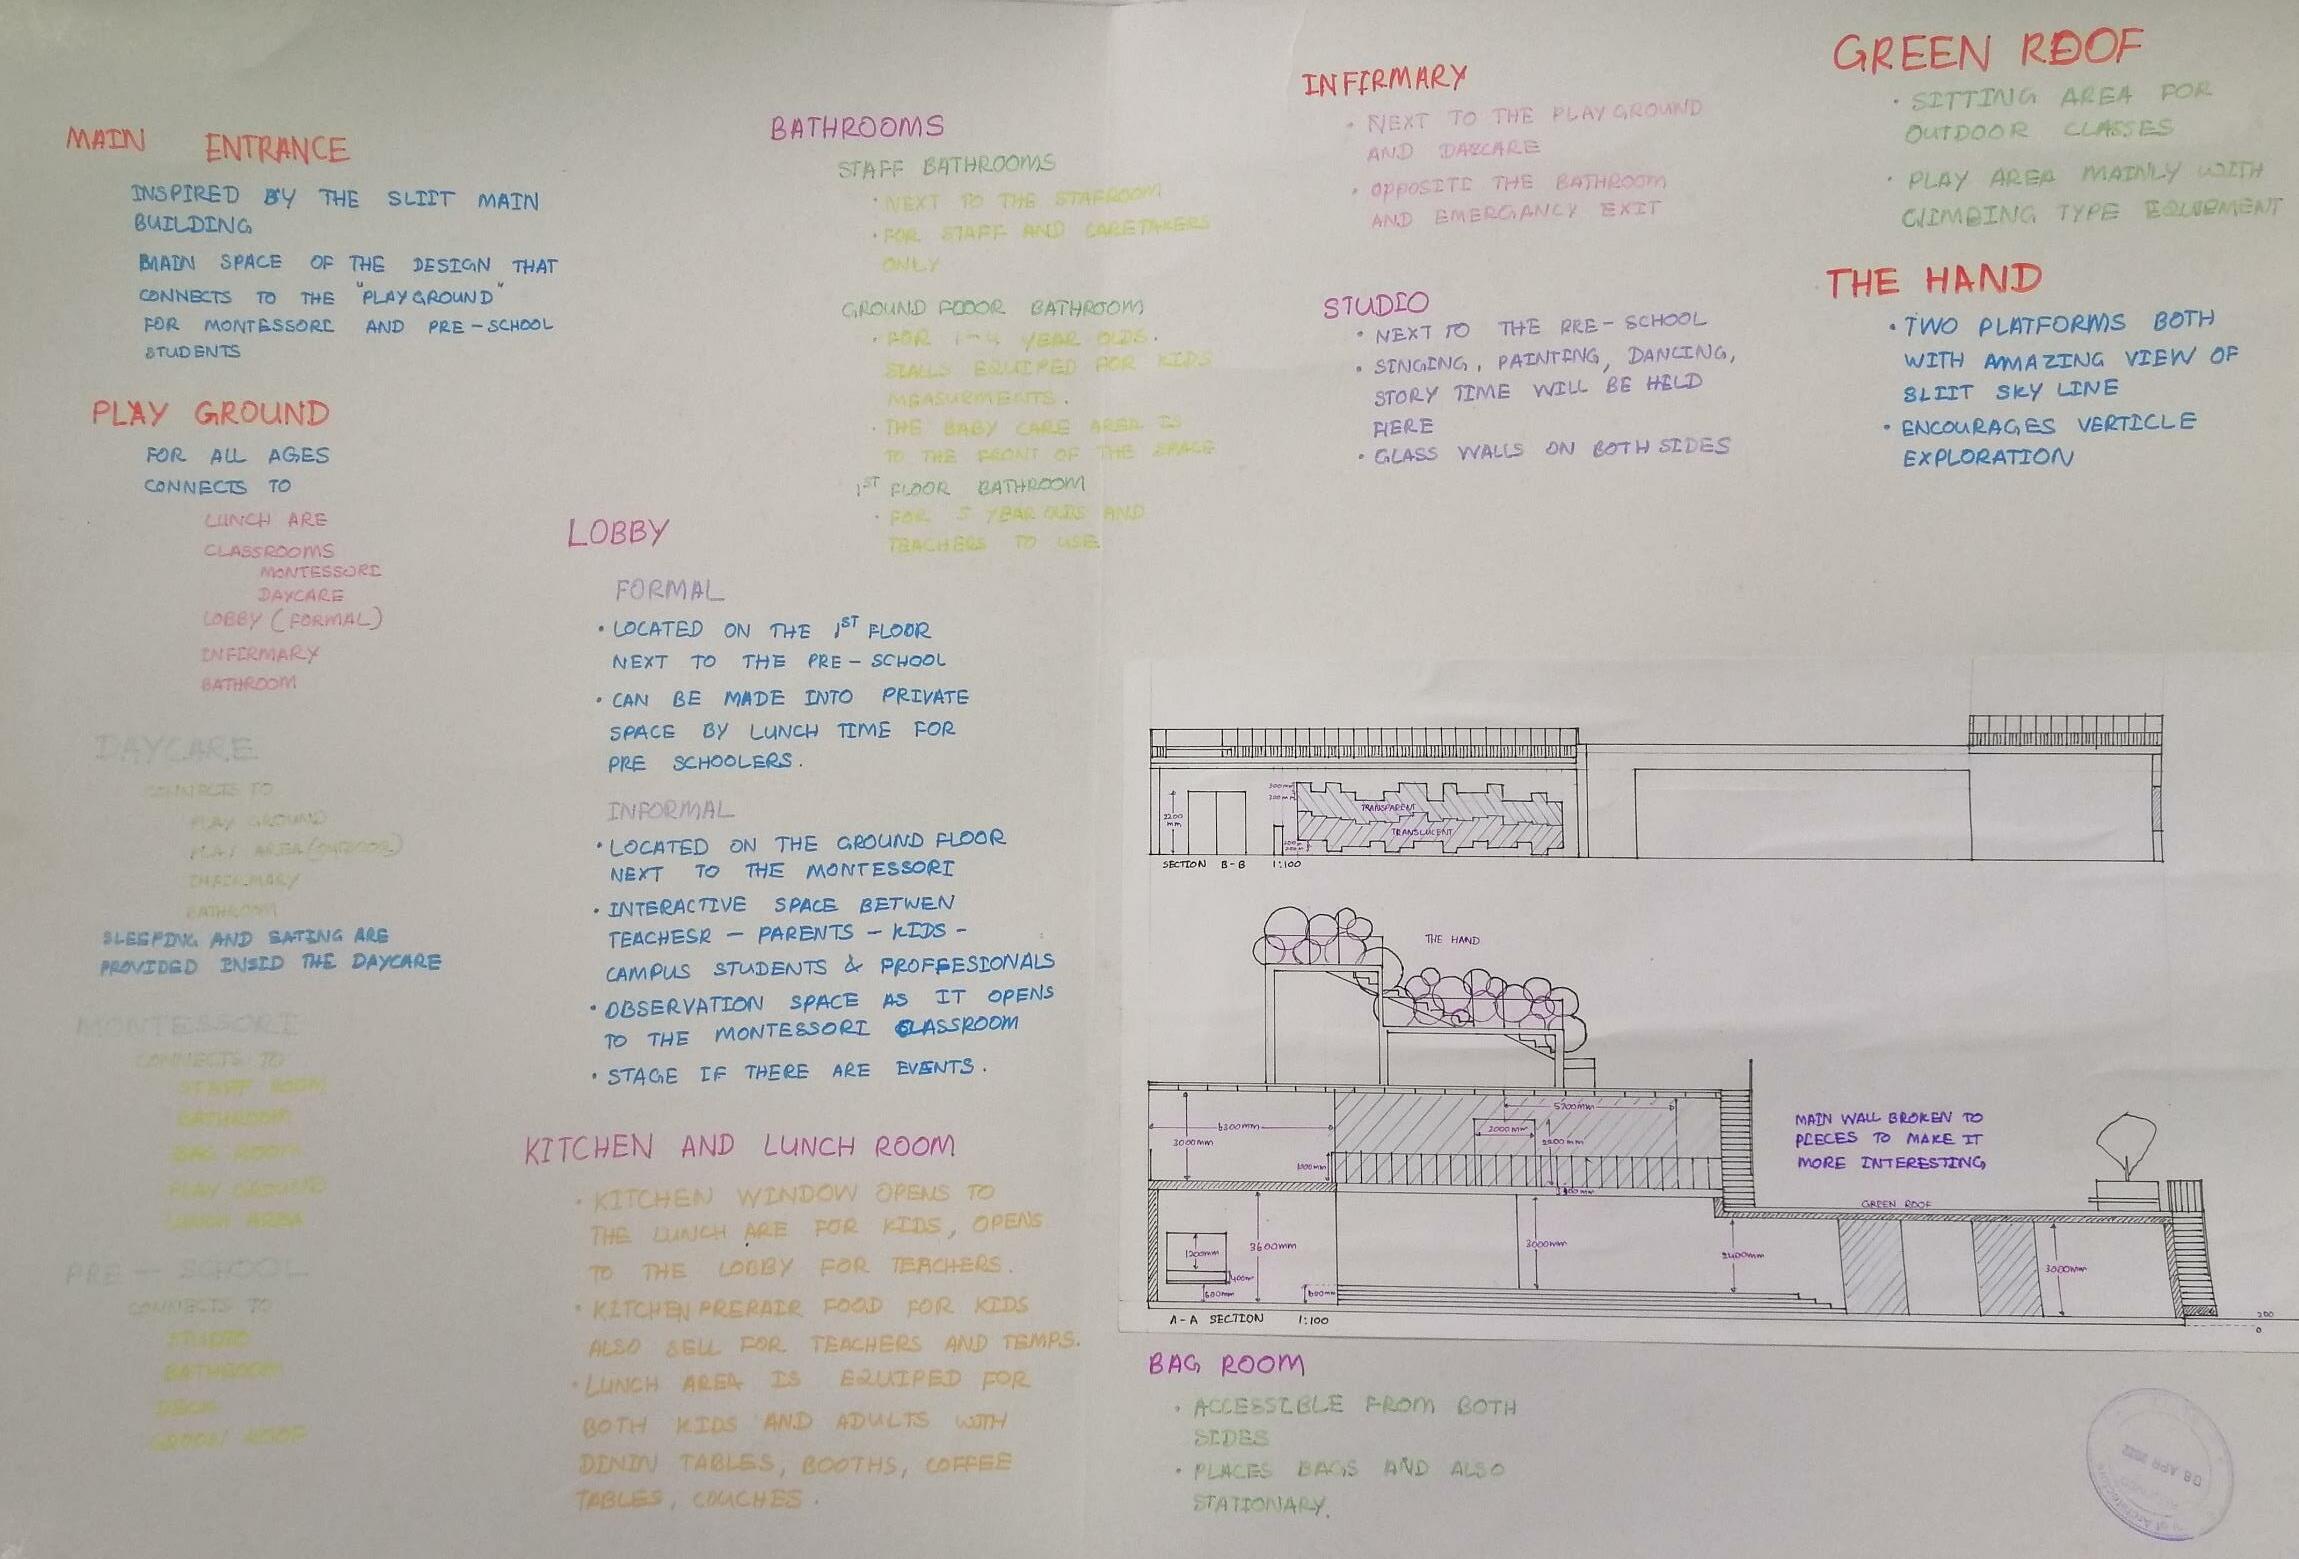 MAIN ENTRANCE
INSPIRED BY THE SLIIT MAIN
BUILDING
MAIN SPACE OF THE DESIGN THAT
CONNECTS TO THE "PLAYGROUND"
FOR MONTESSORI AND PRE-SCHOOL
STUDENTS
PLAY GROUND
FOR ALL AGES
CONNECTS TO
LUNCH ARE
CLASSROOMS
MONTESSORI
DAYCARE
LOBBY (FORMAL)
INFIRMARY
BATHROOM
DAYCARE
CONNECTS TO
PLAY GROUND
PLAY AREA (OUTDOOR)
INFIRMARY
BATHROOM
SLEEPING AND EATING ARE
PROVIDED INSID THE DAYCARE
MONTESSORI
CONNECTS TO
STAFF ROOM
BATHROOM
BAG ROOM
PLAY GROUND
LUNCH AREA
PRE-SCHOOL
CONNECTS TO
STUDIO
BATHROOM
DECK
GREEN ROOF
BATHROOMS
STAFF BATHROOMS
• NEXT TO THE STAFROOM
• FOR STAFF AND CARETAKERS
ONLY
GROUND FLOOR BATHROOM
• FOR 1-4 YEAR OLDS.
STALLS EQUIPED FOR KIDS
MEASURMENTS.
• THE BABY CARE AREA IS
TO THE FRONT OF THE SPACE
1ST FLOOR BATHROOM
• FOR 5 YEAR OLDS AND
TEACHERS TO USE
LOBBY
FORMAL
• LOCATED ON THE 1ST FLOOR
NEXT TO THE PRE-SCHOOL
• CAN BE MADE INTO PRIVATE
SPACE BY LUNCH TIME FOR
PRE SCHOOLERS.
INFORMAL
• LOCATED ON THE GROUND FLOOR
NEXT TO THE MONTESSORI
• INTERACTIVE SPACE BETWEN
TEACHESR - PARENTS - KIDS -
CAMPUS STUDENTS & PROFFESIONALS
• OBSERVATION SPACE AS IT OPENS
TO THE MONTESSORI CLASSROOM
• STAGE IF THERE ARE EVENTS.
KITCHEN AND LUNCH ROOM
• KITCHEN WINDOW OPENS TO
THE LUNCH ARE FOR KIDS, OPENS
TO THE LOBBY FOR TEACHERS.
• KITCHEN PREPAIR FOOD FOR KIDS
ALSO SELL FOR TEACHERS AND TEMPS.
• LUNCH AREA IS EQUIPED FOR
BOTH KIDS AND ADULTS WITH
DININ TABLES, BOOTHS, COFFEE
TABLES, COUCHES.
INFIRMARY
• NEXT TO THE PLAYGROUND
AND DAYCARE
• OPPOSITE THE BATHROOM
AND EMERGANCY EXIT
STUDIO
• NEXT TO THE PRE-SCHOOL
• SINGING, PAINTING, DANCING,
STORY TIME WILL BE HELD
HERE
• GLASS WALLS ON BOTH SIDES
GREEN ROOF
• SITTING AREA FOR
OUTDOOR CLASSES
• PLAY AREA MAINLY WITH
CLIMBING TYPE EQUIPMENT
THE HAND
• TWO PLATFORMS BOTH
WITH AMAZING VIEW OF
SLIIT SKY LINE
• ENCOURAGES VERTICLE
EXPLORATION
300mm
300mm
2200
mm
TRANSPARENT
TRANSLUCENT
SECTION B-B 1:100
THE HAND
5700mm
6300mm
3000mm
2000mm
2200mm
1000mm
MAIN WALL BROKEN TO
PIECES TO MAKE IT
MORE INTERESTING
GREEN ROOF
1200mm
3600mm
3000mm
2400mm
3000mm
400m
600mm
600mm
A-A SECTION 1:100
200
0
BAG ROOM
• ACCESSIBLE FROM BOTH
SIDES
• PLACES BAGS AND ALSO
STATIONARY.
08 APR 2022